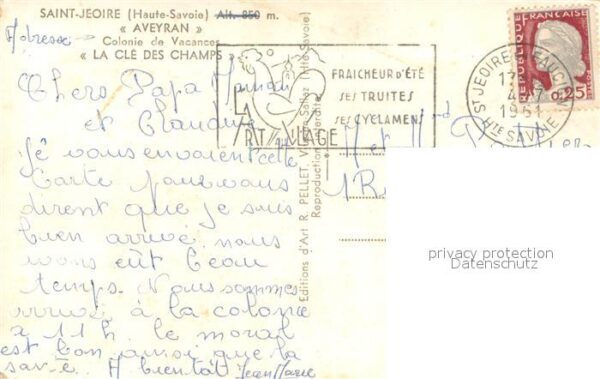 SAINT-JEOIRE (Haute-Savoie) Alt. 850 m.
« AVEYRAN »
Adresse
Colonie de Vacances
« LA CLÉ DES CHAMPS »
Chers Papa Maman
et Claudine
Je vous envoient cette
Carte pour vous
dirent que je suis
bien arrivé nous
avons eût beau
temps. Nous sommes
arrivé à la colonie
a 11h. le moral
est bon ainsi que la
santé. A bientôt Jean Marie
Editions d'Art R. PELLET,
Reproduction interdite
FRAICHEUR D'ÉTÉ
SES TRUITES
SES CYCLAMENS
ST JEOIRE
1961
HTE SAVOIE
REPUBLIQUE FRANÇAISE
0,25
M et M
1 R
privacy protection
Datenschutz